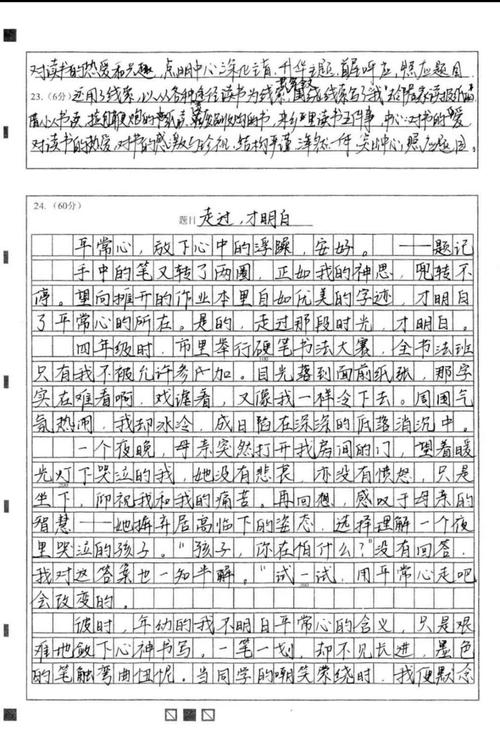 对读书的热爱和兴趣,点明中心深化主旨,升华主题,首尾呼应,照应题目
23.(6分)运用了线索,以从各种途径读书为线索
对读书的热爱,对书的感激与珍视,结构严谨浑然一体,突出中心照应题目。
24.(60分)
题目 走过,才明白
平常心,放下心中的浮躁,安好。——题记
手中的笔又转了两圈,正如我的神思,兜转不
停。望向摊开的作业本里自如优美的字迹,才明白
了平常心的所在。是的,走过那段时光,才明白。
四年级时,市里举行硬笔书法大赛,全书法班
只有我不被允许参加。目光落到面前纸张,那字
实在难看啊,戏谑着,又让我一样冷下去。周围气
氛热闹,我却冰冷,成日陷在深深的低落消沉中。
一个夜晚,母亲突然打开我房间的门,望着暖
光灯下哭泣的我,她没有悲哀,亦没有愤怒,只是
坐下,仰视我和我的痛苦。再回想,感叹于母亲的
智慧——她摒弃居高临下的姿态,选择理解一个夜
里哭泣的孩子。"孩子,你在怕什么?"没有回答,
我对这答案也一知半解。"试一试,用平常心走吧
会改变的。
彼时,年幼的我不明白平常心的含义,只是艰
难地放下心神书写。一笔一划,却不见长进,墨色
的笔触弯曲忸怩。当同学的嘲笑萦绕时,我便默念